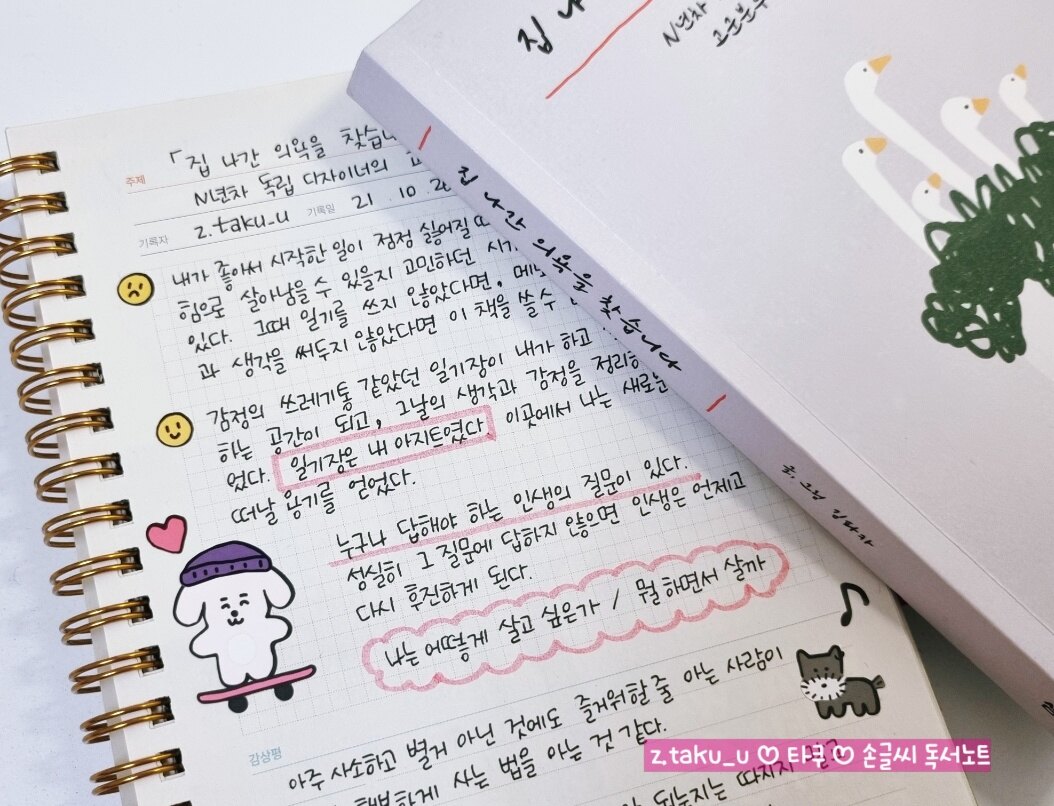 주제 「집 나간 의욕을 찾습니
N년차 독립 디자이너의
기록자 z.taku_u 기록일 21 10 26
내가 좋아서 시작한 일이 점점 싫어질
힘으로 살아남을 수 있을지 고민하던 시기
있다. 그때 일기를 쓰지 않았다면,
과 생각을 써두지 않았다면 이 책을 쓸 수
감정의 쓰레기통 같았던 일기장이 내가 하고
하는 공간이 되고, 그날의 생각과 감정을 정리하
었다. 일기장은 내 아지트였다. 이곳에서 나는 새로운
떠날 용기를 얻었다.
누구나 답해야 하는 인생의 질문이 있다.
성실히 그 질문에 답하지 않으면 인생은 언제고
다시 후진하게 된다.
나는 어떻게 살고 싶은가 / 뭘 하면서 살까
감상평
아주 사소하고 별거 아닌 것에도 즐거워할 줄 아는 사람이
행복하게 사는 법을 아는 것 같다.
집 나
N년차
고군분투
집 나간 의욕을 찾습니다
글, 그림 김파카
z.taku_u ♡ 타쿠 ♡ 손글씨 독서노트